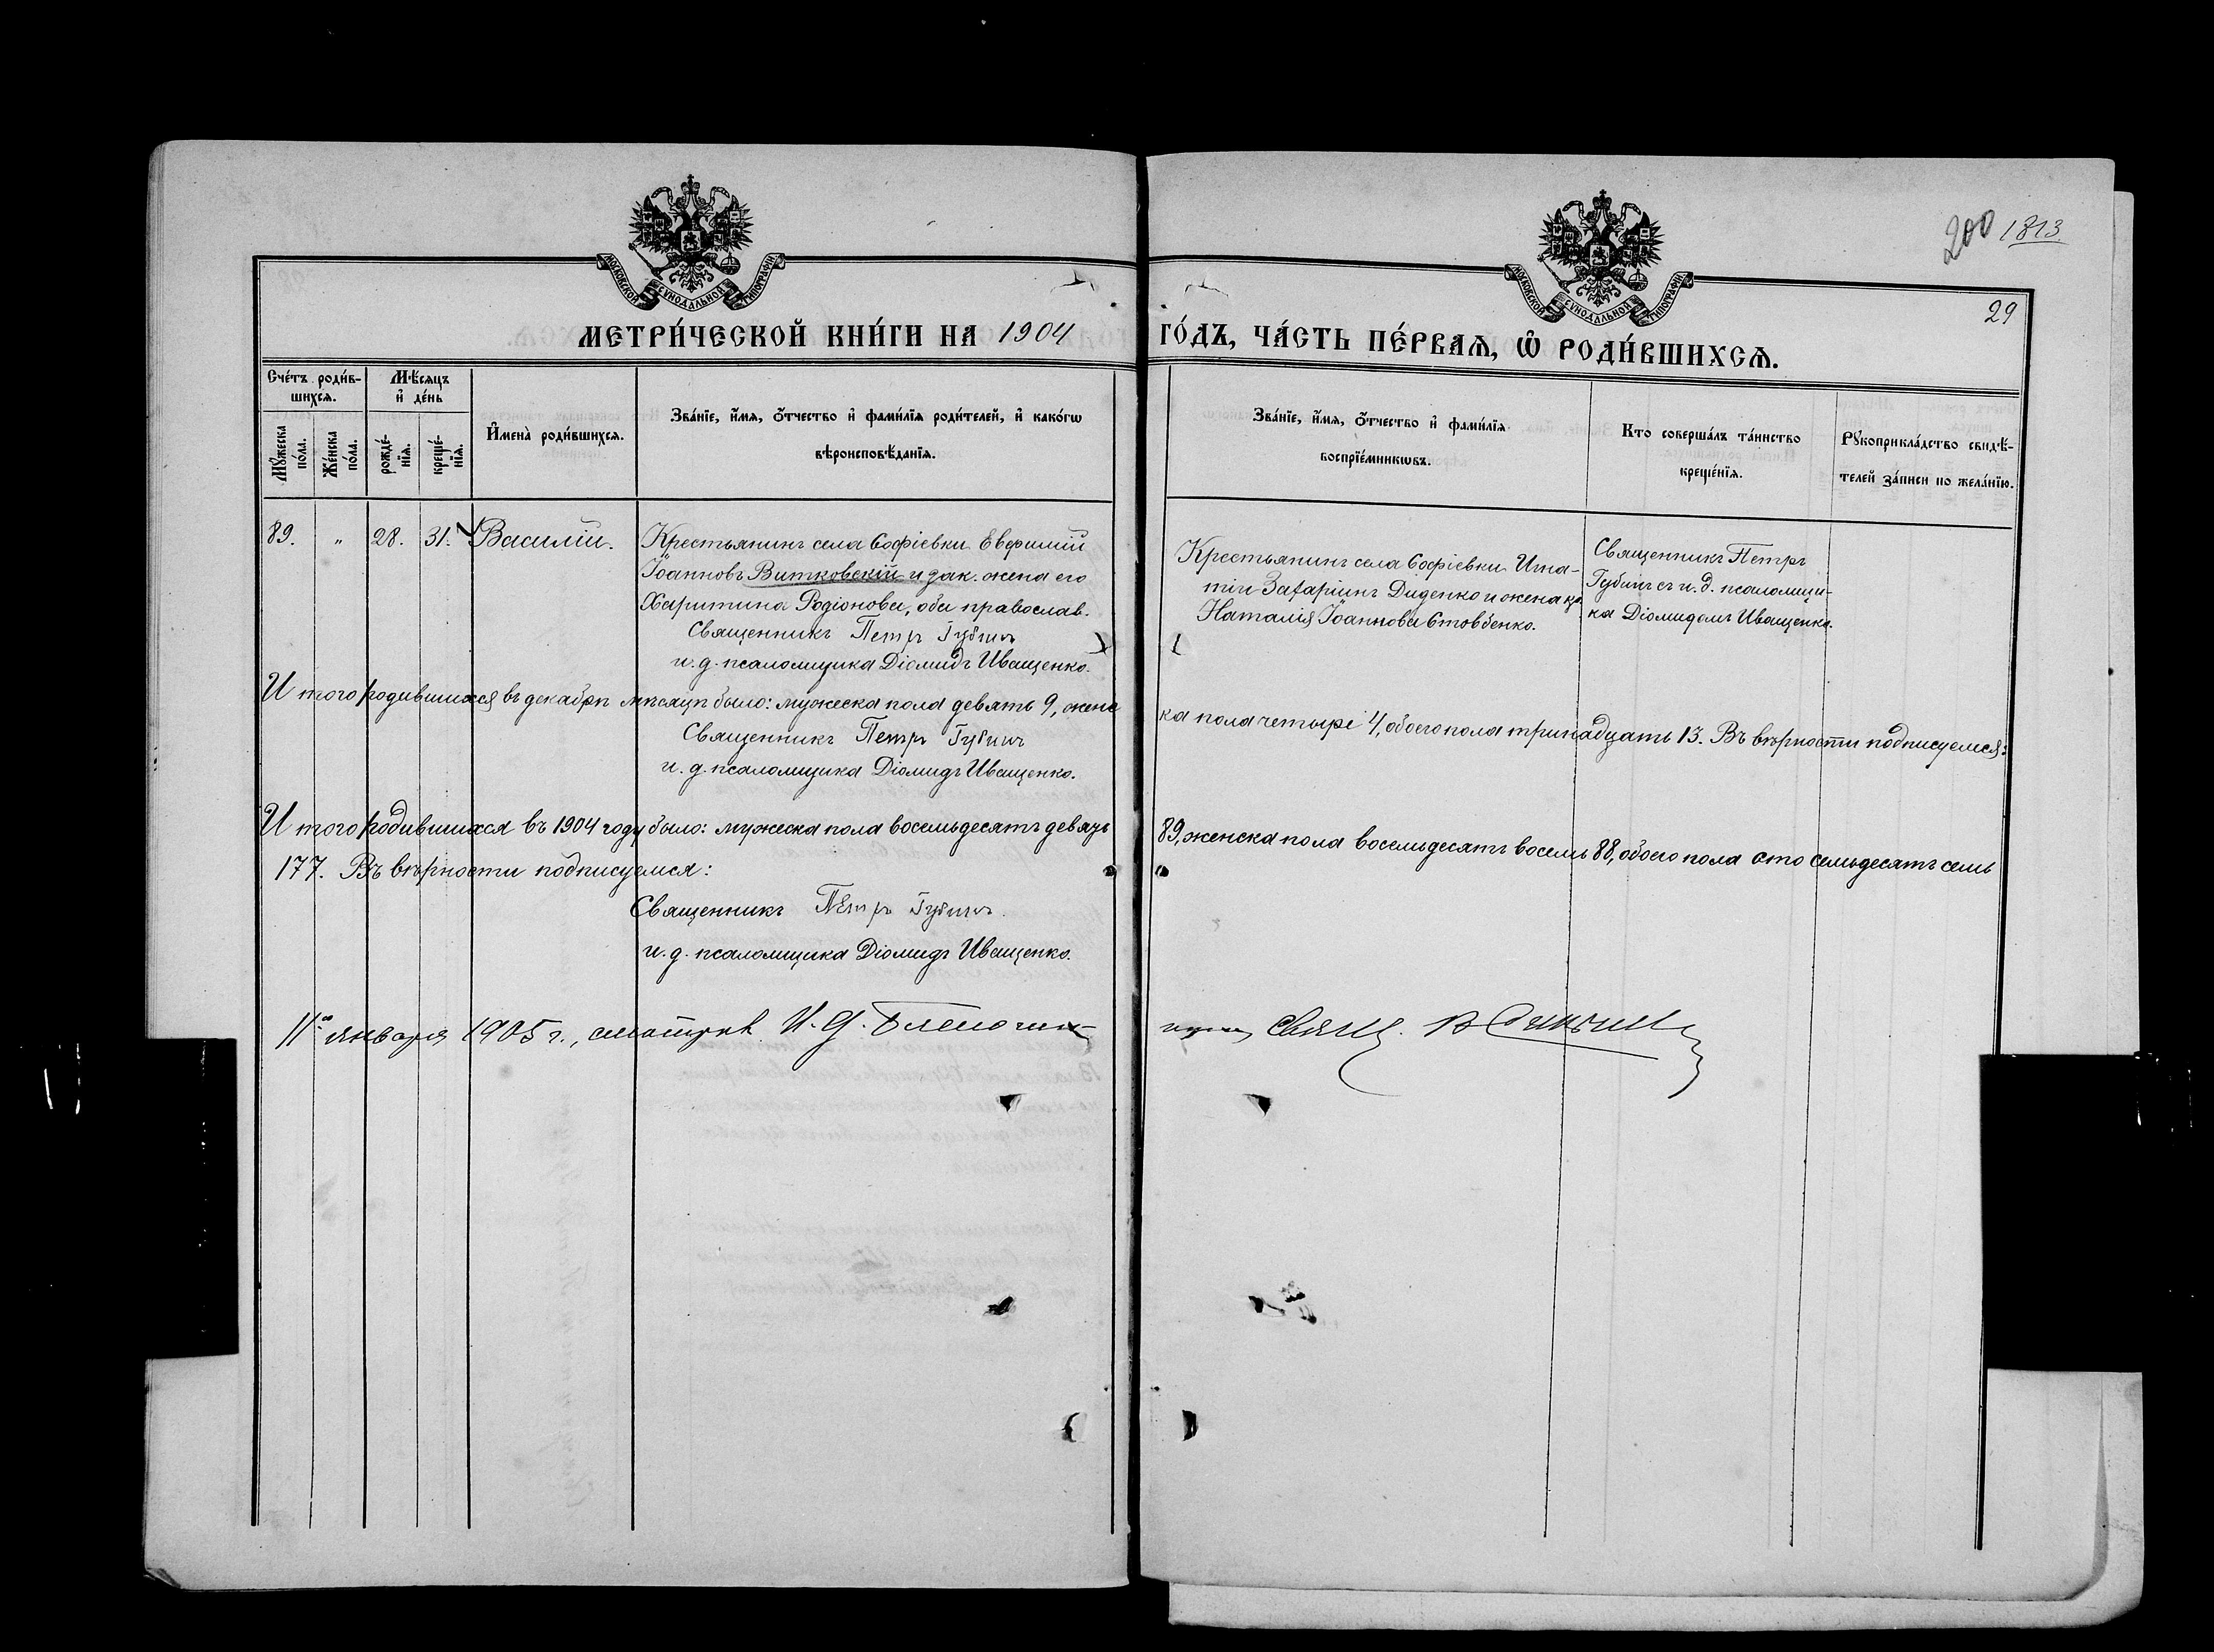 200 1813
29
МОСКОВСКОЙ СУНОДАЛЬНОЙ ТИПОГРАФІИ
МОСКОВСКОЙ СУНОДАЛЬНОЙ ТИПОГРАФІИ
МЕТРИ́ЧЕСКОЙ КНИ́ГИ НА 1904 ГО́ДЪ, ЧА́СТЬ ПЕ́РВАѦ, Ѡ҆ РОДИ́ВШИХСѦ.
Сче́тъ роди́в-
шихсѧ.
Мѣ́сѧцъ
и҆ де́нь
Мꙋ́жеска
по́ла.
Же́нска
по́ла.
рожде́-
нїѧ.
креще́-
нїѧ.
И҆мена̀ роди́вшихсѧ.
Зва́нїе, и҆́мѧ, ѻ҆́тчество и҆ фами́лїѧ роди́телей, и҆ како́гѡ
вѣроисповѣ́данїѧ.
Зва́нїе, и҆́мѧ, ѻ҆́тчество и҆ фами́лїѧ
воспрїе́мникѡвъ.
Кто соверша́лъ та́инство
креще́нїѧ.
Рꙋкоприкла́дство свидѣ́-
телей за́писи по жела́нїю.
89. „ 28. 31. Василій.
Крестьянинъ села Софіевки Евфимій
Іоанновъ Витковскій и зак. жена его
Харитина Родіонова, оба православ.
Священникъ Петръ Губинъ
и. д. псаломщика Діомидъ Иващенко.
Крестьянинъ села Софіевки Игна-
тій Захаріинъ Диденко и жена кр.
Наталія Іоаннова Стовбенко.
Священникъ Петръ
Губинъ съ и. д. псаломщи-
ка Діомидомъ Иващенко.
И того родившихся въ декабрѣ мѣсяцѣ было: мужеска пола девять 9, женс
ка пола четыре 4, обоего пола тринадцать 13. Въ вѣрности подписуемся:
Священникъ Петръ Губинъ
и. д. псаломщика Діомидъ Иващенко.
И того родившихся въ 1904 году было: мужеска пола восемьдесятъ девять
89, женска пола восемьдесятъ восемь 88, обоего пола сто семьдесятъ семь
177. Въ вѣрности подписуемся:
Священникъ Петръ Губинъ.
и. д. псаломщика Діомидъ Иващенко.
11го января 1905 г., смотрѣлъ И. д. Благочин-
наго, Свящ.